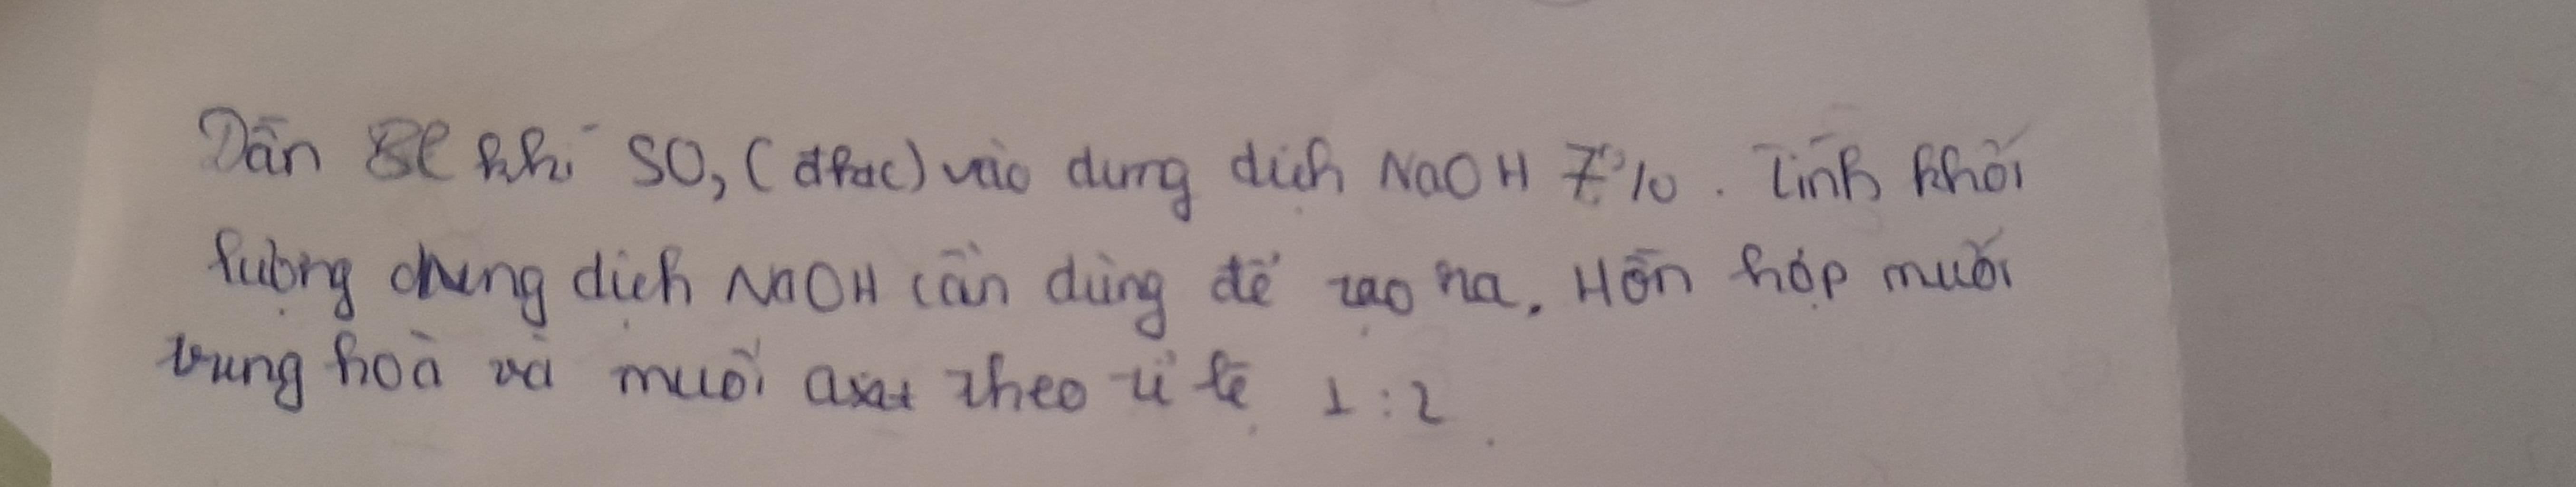 Dẫn 8l khí SO₂ (đktc) vào dung dịch NaOH 7%. Tính khối
lượng dung dịch NaOH cần dùng để tạo ra. Hỗn hợp muối
trung hoà và muối axit theo tỉ lệ 1:2.